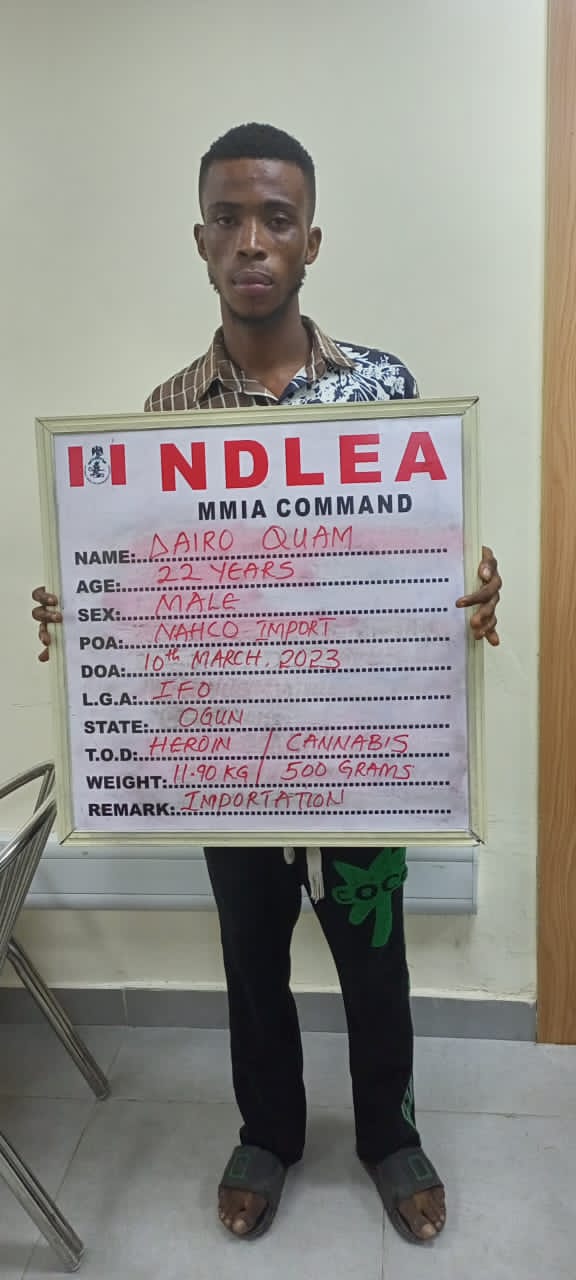 NDLEA
MMIA COMMAND
NAME: DAIRO QUAM
AGE: 22 YEARS
SEX: MALE
POA: NAHCO IMPORT
DOA: 10th MARCH, 2023
L.G.A: IFO
STATE: OGUN
T.O.D: HEROIN / CANNABIS
WEIGHT: 11.90 KG / 500 GRAMS
REMARK: IMPORTATION